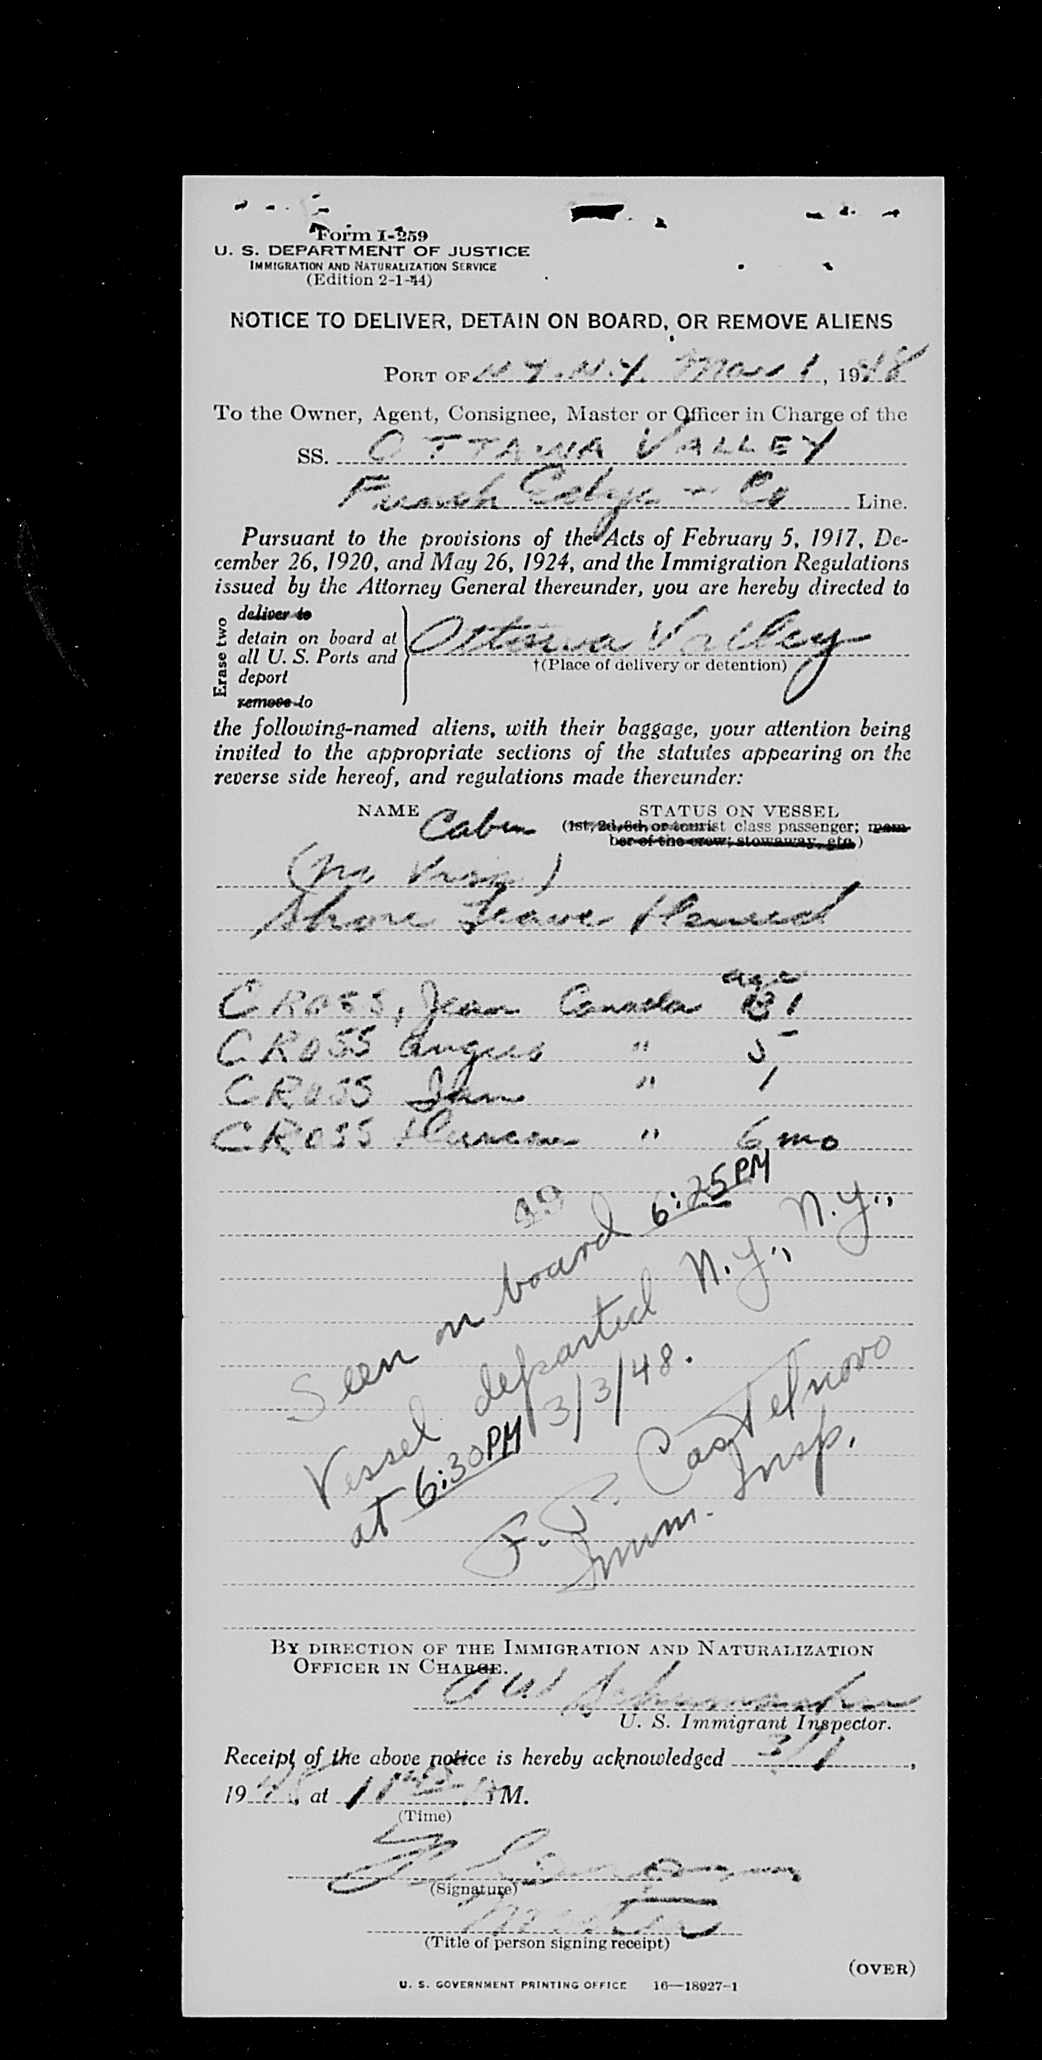 Form I-259
U. S. DEPARTMENT OF JUSTICE
IMMIGRATION AND NATURALIZATION SERVICE
(Edition 2-1-44)
NOTICE TO DELIVER, DETAIN ON BOARD, OR REMOVE ALIENS
PORT OF N.Y. N.Y. Mar 1, 1948
To the Owner, Agent, Consignee, Master or Officer in Charge of the
SS. OTTAWA VALLEY
Funch Edye & Co Line.
Pursuant to the provisions of the Acts of February 5, 1917, De-
cember 26, 1920, and May 26, 1924, and the Immigration Regulations
issued by the Attorney General thereunder, you are hereby directed to
Erase two
deliver to
detain on board at
all U. S. Ports and
deport
remove to
Ottawa Valley
†(Place of delivery or detention)
the following-named aliens, with their baggage, your attention being
invited to the appropriate sections of the statutes appearing on the
reverse side hereof, and regulations made thereunder:
NAME STATUS ON VESSEL
Cabin (1st, 2d, 3d, or tourist class passenger; mem-
ber of the crew; stowaway, etc.)
(No Visa)
Shore Leave Denied
age
CROSS, Jean Canada 31
CROSS Angus " 5
CROSS Ian " 1
CROSS Duncan " 6 mo
49
Seen on board 6:25PM
Vessel departed N.Y., N.Y.,
at 6:30PM 3/3/48.
F. P. Castelnovo
Imm. Insp.
BY DIRECTION OF THE IMMIGRATION AND NATURALIZATION
OFFICER IN CHARGE.
Schumacher
U. S. Immigrant Inspector.
Receipt of the above notice is hereby acknowledged 3/1,
1948, at 11 M.
(Time)
(Signature)
Master
(Title of person signing receipt)
(OVER)
U. S. GOVERNMENT PRINTING OFFICE 16—18927-1